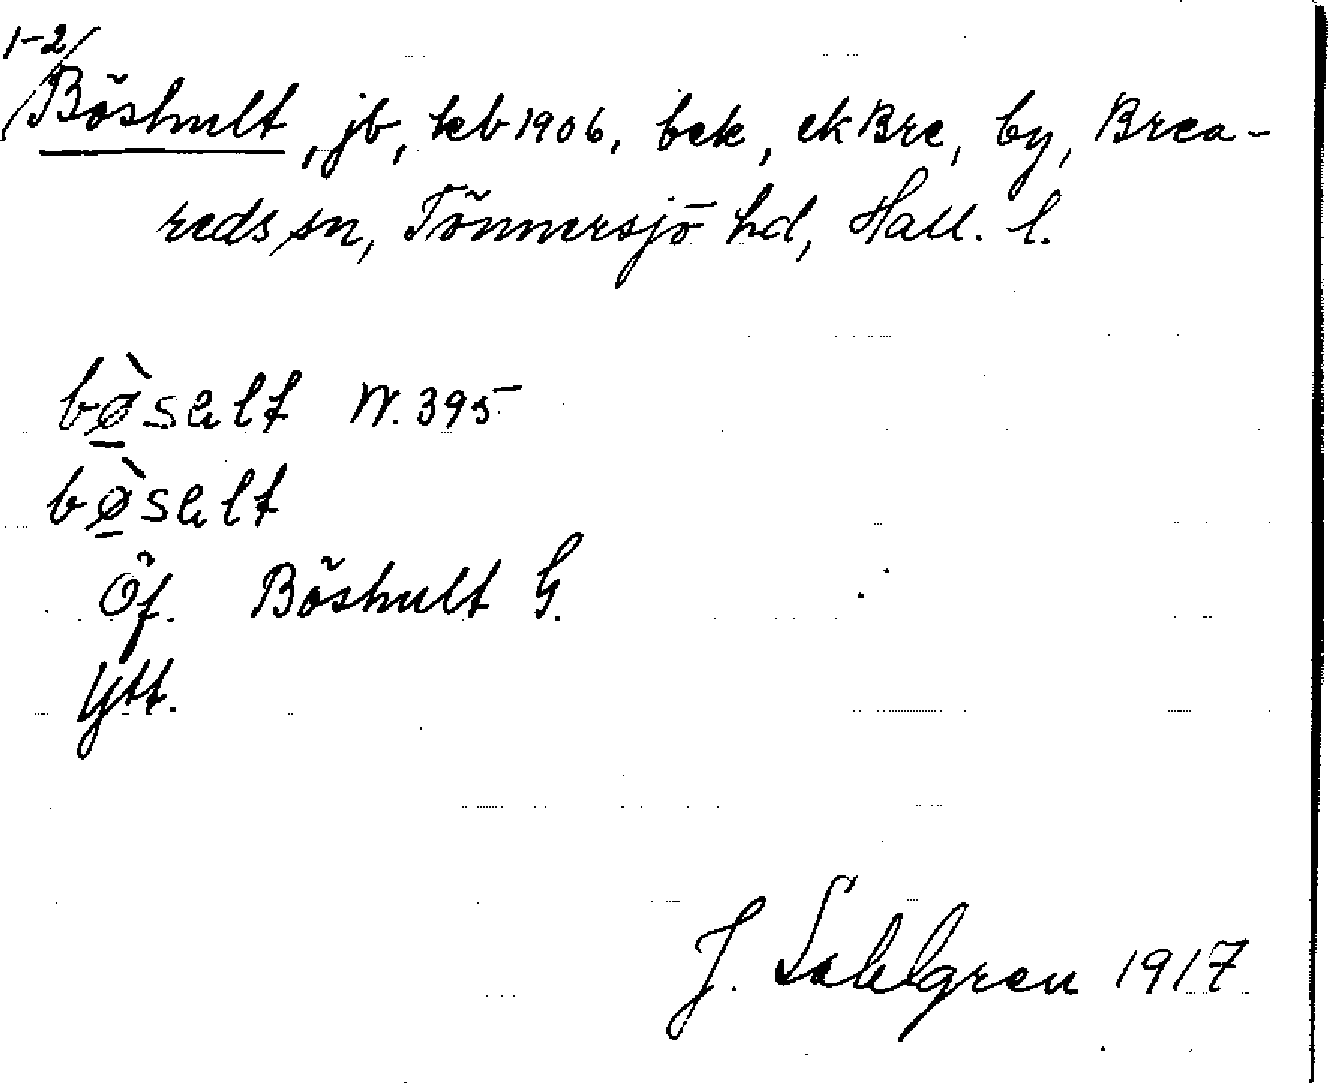 1-2/
Böshult, jb, keb 1906, bek, ek Bre, by, Brea-
reds sn, Tönnersjö hd, Hall. l.
bø̀salt W. 395
bø̀salt
Öf. Böshult G.
Ytt.
J. Sahlgren 1917